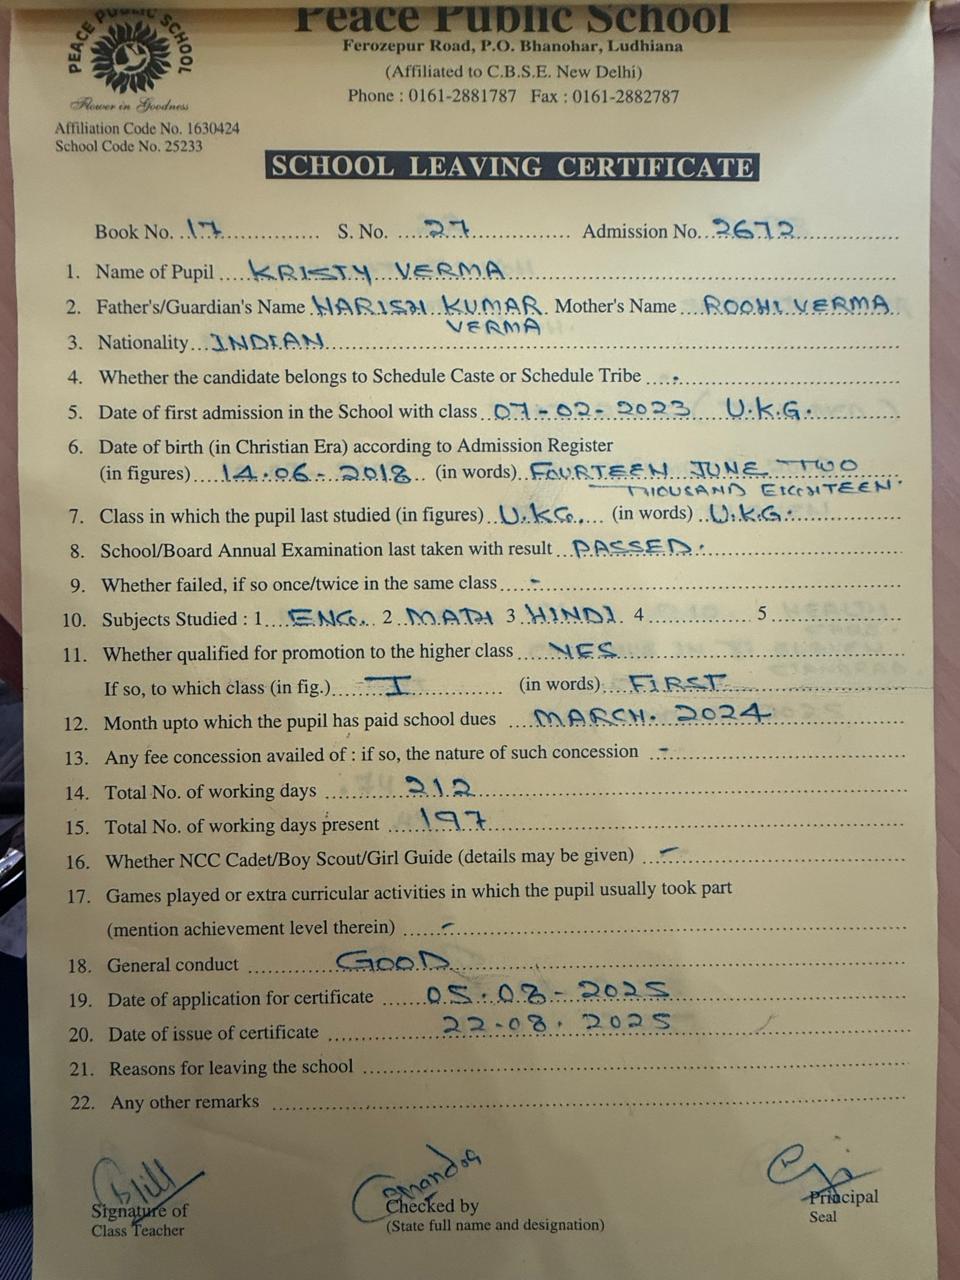 Peace Public School
PEACE PUBLIC SCHOOL
Ferozepur Road, P.O. Bhanohar, Ludhiana
(Affiliated to C.B.S.E. New Delhi)
Flower in Goodness
Phone : 0161-2881787 Fax : 0161-2882787
Affiliation Code No. 1630424
School Code No. 25233
SCHOOL LEAVING CERTIFICATE
Book No. 17 S. No. 27 Admission No. 2672
1. Name of Pupil KRISTY VERMA
2. Father's/Guardian's Name HARISH KUMAR Mother's Name ROOHI VERMA
VERMA
3. Nationality INDIAN
4. Whether the candidate belongs to Schedule Caste or Schedule Tribe -
5. Date of first admission in the School with class 07-02-2023 U.K.G.
6. Date of birth (in Christian Era) according to Admission Register
(in figures) 14-06-2018 (in words) FOURTEEN JUNE TWO
THOUSAND EIGHTEEN.
7. Class in which the pupil last studied (in figures) U.KG. (in words) U.K.G.
8. School/Board Annual Examination last taken with result PASSED.
9. Whether failed, if so once/twice in the same class -
10. Subjects Studied : 1 ENG. 2 MATH 3 HINDI 4 5
11. Whether qualified for promotion to the higher class YES
If so, to which class (in fig.) I (in words) FIRST
12. Month upto which the pupil has paid school dues MARCH. 2024
13. Any fee concession availed of : if so, the nature of such concession -
14. Total No. of working days 212
15. Total No. of working days present 197
16. Whether NCC Cadet/Boy Scout/Girl Guide (details may be given) -
17. Games played or extra curricular activities in which the pupil usually took part
(mention achievement level therein) -
18. General conduct GOOD
19. Date of application for certificate 05-08-2025
20. Date of issue of certificate 22-08-2025
21. Reasons for leaving the school
22. Any other remarks
Signature of Checked by Principal
Class Teacher (State full name and designation) Seal